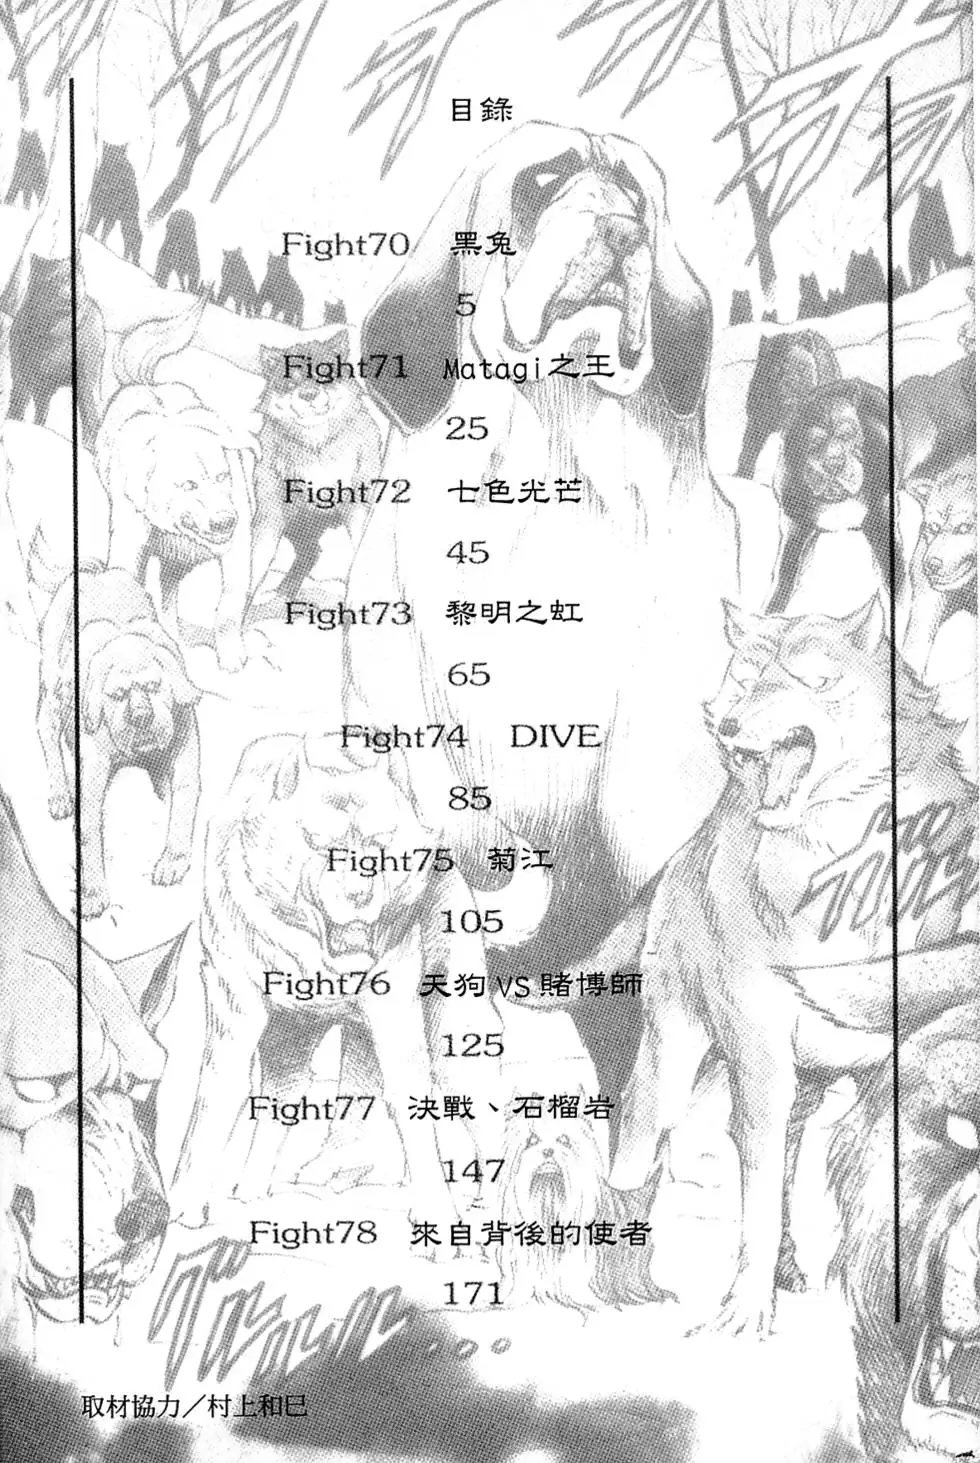 目錄
Fight70 黑兔
5
Fight71 Matagi之王
25
Fight72 七色光芒
45
Fight73 黎明之虹
65
Fight74 DIVE
85
Fight75 菊江
105
Fight76 天狗VS賭博師
125
Fight77 決戰、石榴岩
147
Fight78 來自背後的使者
171
取材協力／村上和巳